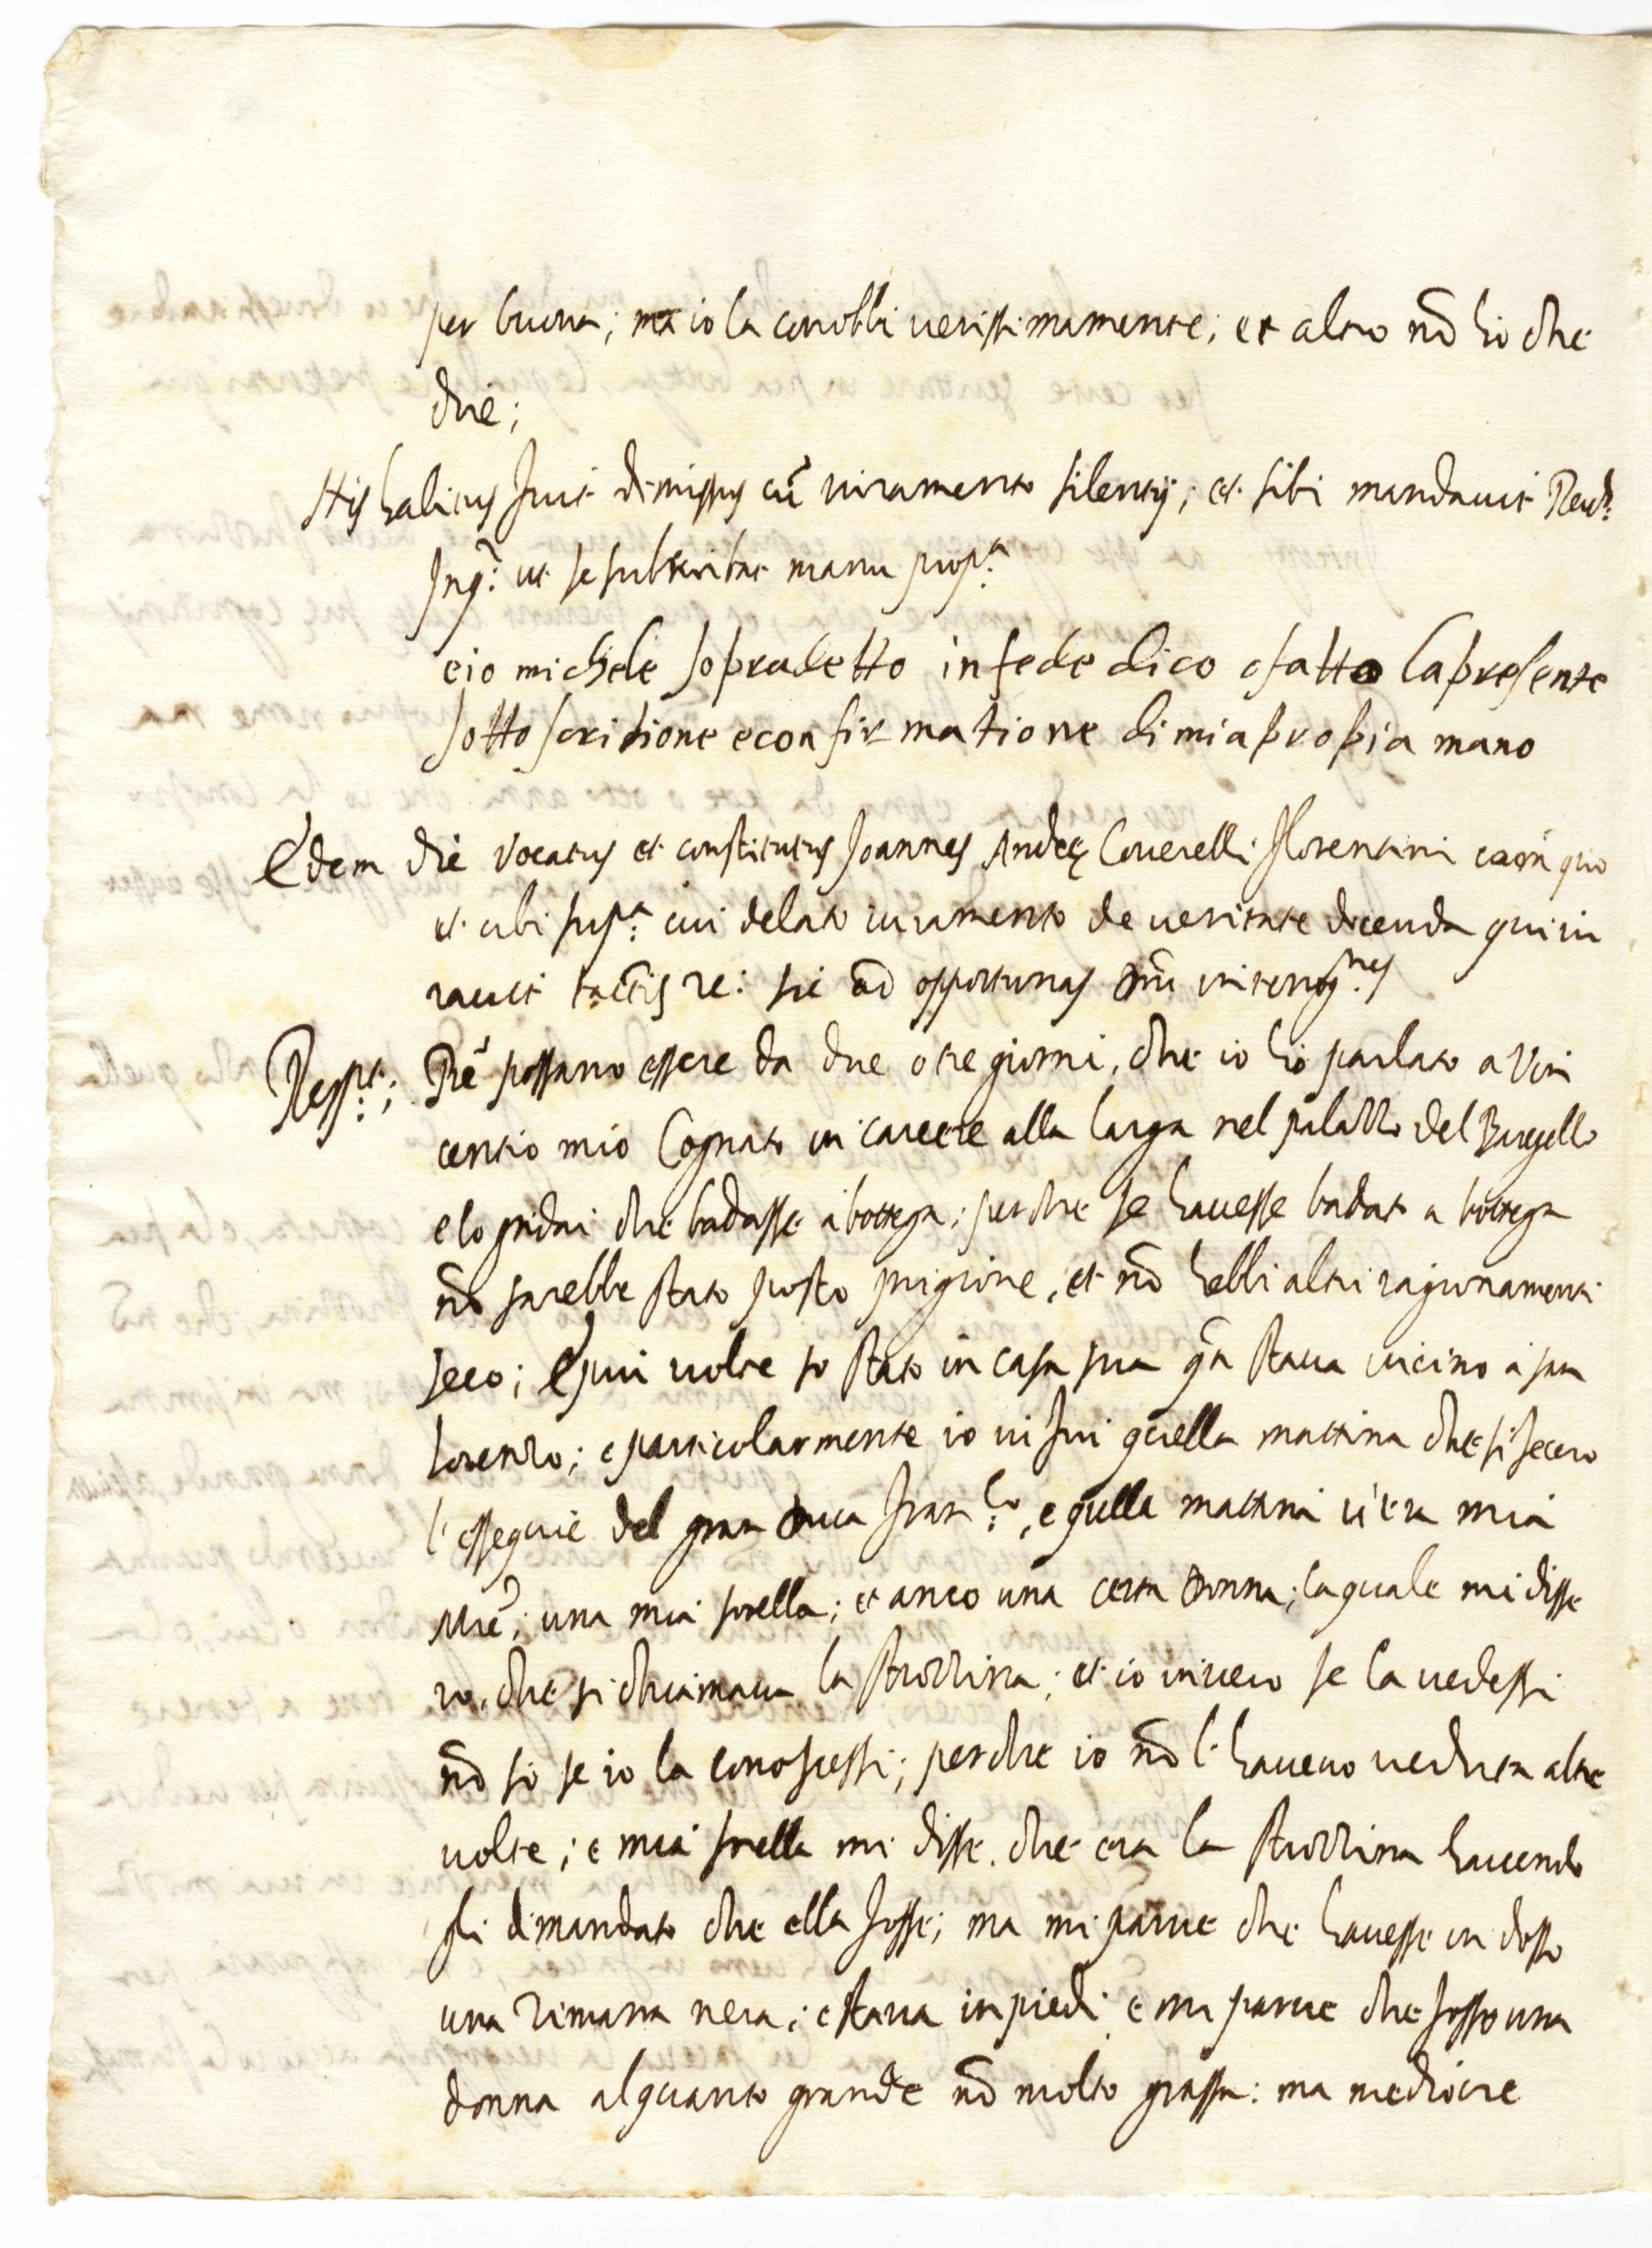 per buona; ma io la conobbi verissimamente; et altro nõ hò che
dire;
His habitus fuit dimissus cũ iuramento silentij; et sibi mandavit Revd:
Inq.r ut se subscribat manu prop.a
e io michele sopradetto in fede dico o fatto la presente
sotto scritione e confirmatione di mia propia mano
Edem die vocatus et constitutus Joannes Andeę Coverelli florentini corã quo
et ubi sup.a cui delato iuramento de veritate dicenda qui iu
ravit tactis re: sic ad opportunas Dñi interrog.nes
Resp.t; Pre possano essere da due o tre giorni, che io hò parlato a Vin
centio mio Cognato in carcere alla larga nel palazzo del Bargello
e lo gridai che badasse à bottega; perche se havesse badato a bottega
nõ sarebbe stato posto prigione, et nõ hebbi altri ragionamenti
seco; E più volte so stato in casa sua qñ stava vicino à san
lorenzo; e particolarmente io vi fui quella mattina che si fecero
l'essequie del gran Duca fran.co, e quella mattina v'era mia
Mre; una mia sorella; et anco una certa Donna; la quale mi disse
ro, che si chiamava la strozzina; et io invero se la vedessi
nõ sò se io la conoscessi; perche io nõ l'havevo veduta altre
volte; e mia sorella mi disse, che era la strozzina havendo
gli dimandato che ella fosse; ma mi parve che havesse in dosso
una zimarra nera; e stava in piedi e mi parve che fosse una
donna alquanto grande nõ molto grassa: ma mediocre